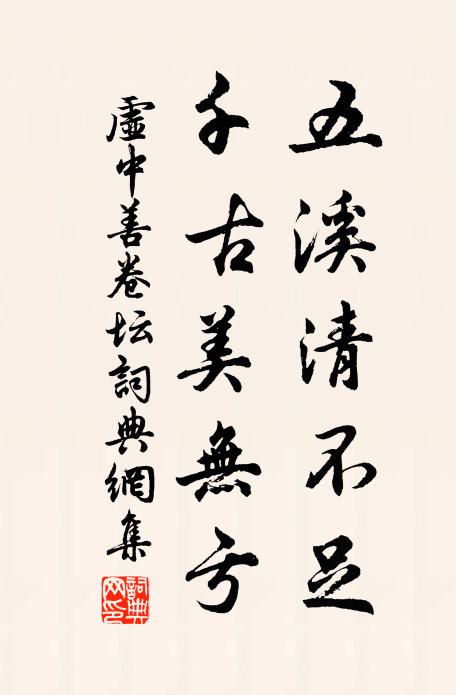 五溪清不足
千古美無亏
虛中善卷坛詞典網集
詞典网印